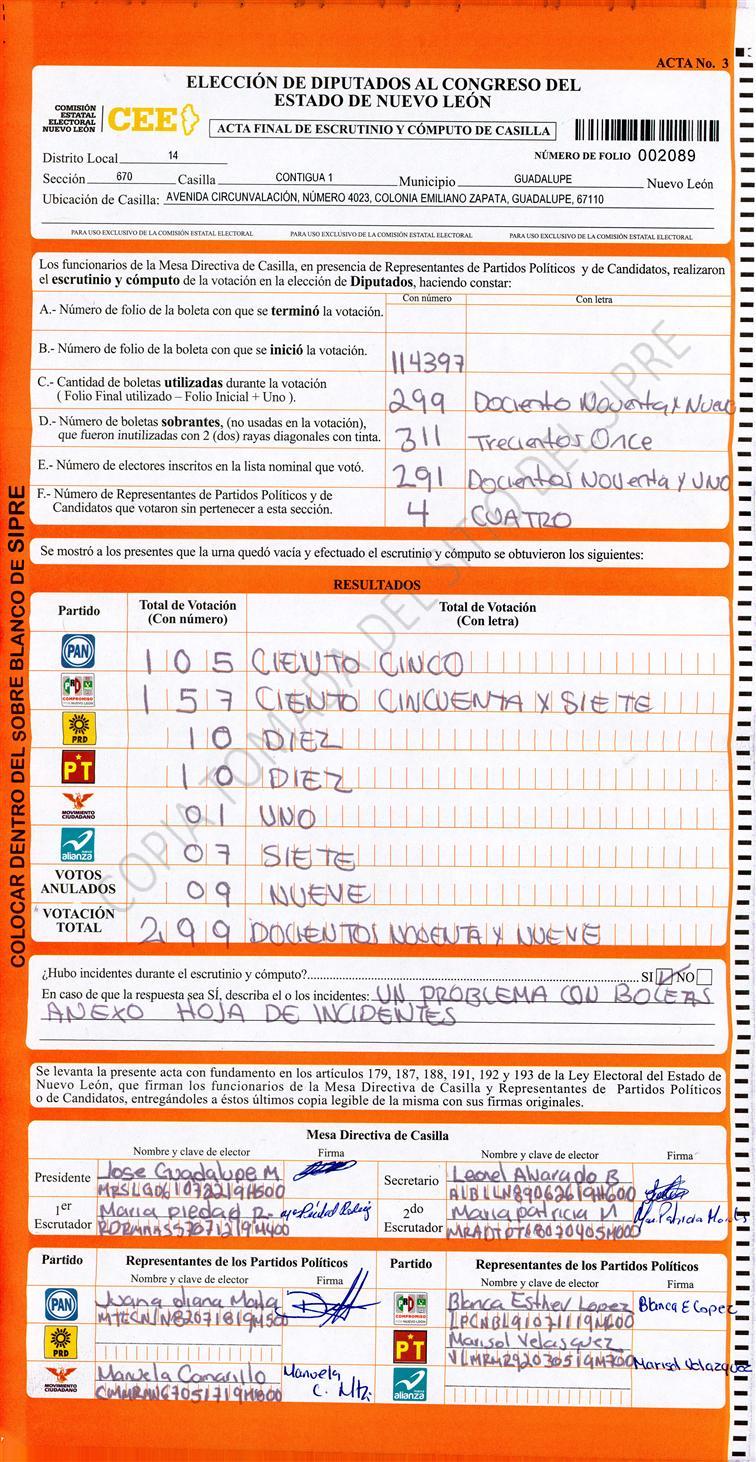 ACTA No. 3
ELECCIÓN DE DIPUTADOS AL CONGRESO DEL
ESTADO DE NUEVO LEÓN
COMISIÓN
ESTATAL
ELECTORAL
NUEVO LEÓN
CEE
ACTA FINAL DE ESCRUTINIO Y CÓMPUTO DE CASILLA
Distrito Local 14
NÚMERO DE FOLIO 002089
Sección 670 Casilla CONTIGUA 1 Municipio GUADALUPE Nuevo León
Ubicación de Casilla: AVENIDA CIRCUNVALACIÓN, NÚMERO 4023, COLONIA EMILIANO ZAPATA, GUADALUPE, 67110
PARA USO EXCLUSIVO DE LA COMISIÓN ESTATAL ELECTORAL PARA USO EXCLUSIVO DE LA COMISIÓN ESTATAL ELECTORAL PARA USO EXCLUSIVO DE LA COMISIÓN ESTATAL ELECTORAL
Los funcionarios de la Mesa Directiva de Casilla, en presencia de Representantes de Partidos Políticos y de Candidatos, realizaron
el escrutinio y cómputo de la votación en la elección de Diputados, haciendo constar:
Con número Con letra
A.- Número de folio de la boleta con que se terminó la votación.
B.- Número de folio de la boleta con que se inició la votación. 114397
C.- Cantidad de boletas utilizadas durante la votación
( Folio Final utilizado – Folio Inicial + Uno ). 299 Dociento Noventa y Nueve
D.- Número de boletas sobrantes, (no usadas en la votación),
que fueron inutilizadas con 2 (dos) rayas diagonales con tinta. 311 Trecientos Once
E.- Número de electores inscritos en la lista nominal que votó. 291 Docientos Noventa y Uno
F.- Número de Representantes de Partidos Políticos y de
Candidatos que votaron sin pertenecer a esta sección. 4 CUATRO
Se mostró a los presentes que la urna quedó vacía y efectuado el escrutinio y cómputo se obtuvieron los siguientes:
RESULTADOS
Partido Total de Votación (Con número) Total de Votación (Con letra)
PAN 105 CIENTO CINCO
PRI COMPROMISO 157 CIENTO CINCUENTA Y SIETE
PRD 10 DIEZ
PT 10 DIEZ
MOVIMIENTO CIUDADANO 01 UNO
alianza 07 SIETE
VOTOS ANULADOS 09 NUEVE
VOTACIÓN TOTAL 299 DOCIENTOS NOVENTA Y NUEVE
COLOCAR DENTRO DEL SOBRE BLANCO DE SIPRE
COPIA TOMADA DEL SITIO DEL SIPRE
¿Hubo incidentes durante el escrutinio y cómputo? SI NO
En caso de que la respuesta sea SÍ, describa el o los incidentes: UN PROBLEMA CON BOLETAS
ANEXO HOJA DE INCIDENTES
Se levanta la presente acta con fundamento en los artículos 179, 187, 188, 191, 192 y 193 de la Ley Electoral del Estado de
Nuevo León, que firman los funcionarios de la Mesa Directiva de Casilla y Representantes de Partidos Políticos
o de Candidatos, entregándoles a éstos últimos copia legible de la misma con sus firmas originales.
Mesa Directiva de Casilla
Nombre y clave de elector Firma Nombre y clave de elector Firma
Presidente Jose Guadalupe M Secretario Leonel Alvarado B
1er Escrutador Maria piedad R. 2do Escrutador Maria patricia M
Partido Representantes de los Partidos Políticos Partido Representantes de los Partidos Políticos
Nombre y clave de elector Firma Nombre y clave de elector Firma
PAN Juana diana PRI Blanca Esther Lopez Blanca E Lopez
PRD PT Marisol Velasquez Marisol Velazquez
MOVIMIENTO CIUDADANO Manuela Camarillo Manuela C. Mtz. alianza